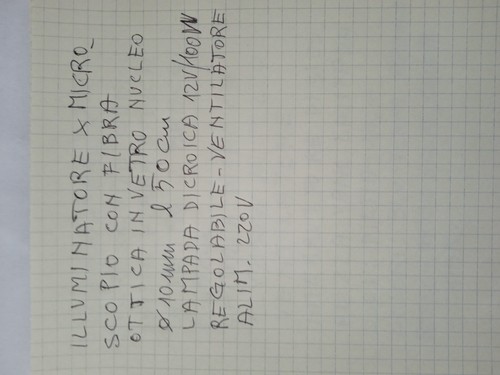 ILLUMINATORE X MICRO_
SCOPIO CON FIBRA
OTTICA IN VETRO NUCLEO
ø 10mm l 50cm
LAMPADA DICROICA 12V/100W
REGOLABILE - VENTILATORE
ALIM. 220V